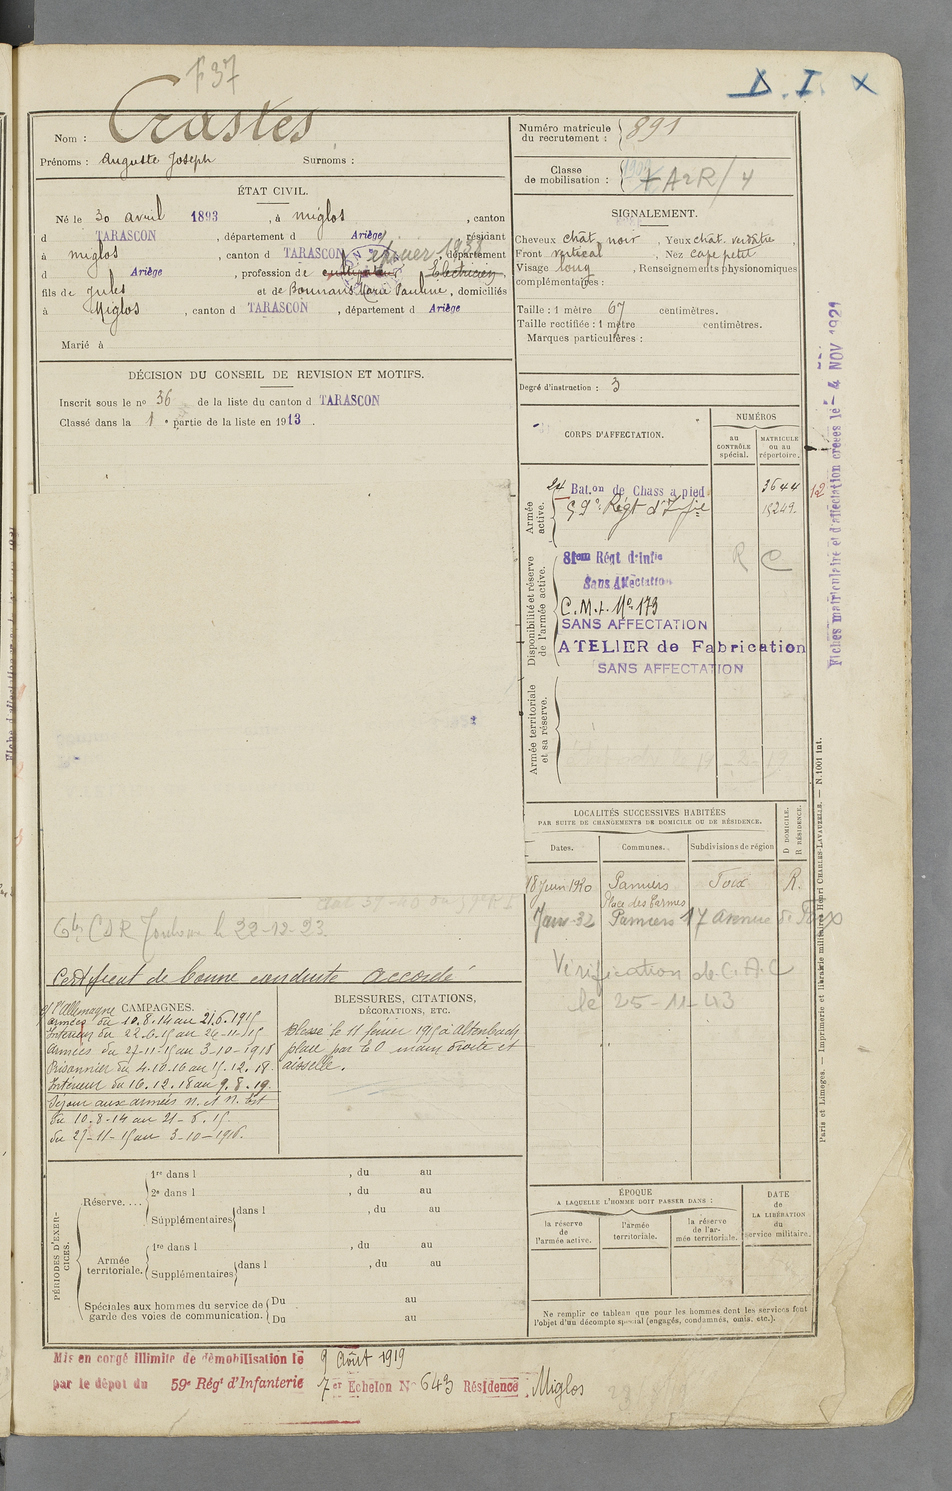 F37
D. I. X
Nom : Crastes
Prénoms : Auguste Joseph Surnoms :
ÉTAT CIVIL.
Né le 30 avril 1893, à Miglos, canton
d TARASCON, département d Ariège, résidant
à Miglos, canton d TARASCON, département
d Ariège, profession de cultivateur Electricien,
fils de Jules et de Bonnans Marie Pauline, domiciliés
à Miglos, canton d TARASCON, département d Ariège
Marié à
DÉCISION DU CONSEIL DE REVISION ET MOTIFS.
Inscrit sous le no 36 de la liste du canton d TARASCON
Classé dans la 1e partie de la liste en 1913.
Numéro matricule du recrutement : 891
Classe de mobilisation : A2R/4
SIGNALEMENT.
Cheveux chât noir, Yeux chât. verdâtre,
Front vertical, Nez cave petit
Visage long, Renseignements physionomiques
complémentaires :
Taille : 1 mètre 67 centimètres.
Taille rectifiée : 1 mètre centimètres.
Marques particulières :
Degré d'instruction : 3
CORPS D'AFFECTATION.
NUMÉROS
au CONTRÔLE spécial.
MATRICULE ou au répertoire.
Armée active.
24 Bat.on de Chass à pied 3644
59e Régt d'Infie 15249
12
Disponibilité et réserve de l'armée active.
81eme Régt d'Infie R C
Sans Affectation
C.M.t. No 179
SANS AFFECTATION
ATELIER de Fabrication
SANS AFFECTATION
Armée territoriale et sa réserve.
Fiches matriculaire et d'affectation créées le 4 NOV 1921
LOCALITÉS SUCCESSIVES HABITÉES
PAR SUITE DE CHANGEMENTS DE DOMICILE OU DE RÉSIDENCE.
Dates. Communes. Subdivisions de région
D DOMICILE. R RÉSIDENCE.
18 Juin 1920 Pamiers Foix R.
Place des Carmes
Janv. 32 Pamiers 17 avenue de Foix
Vérification de C.A.C
le 25-11-43
CDR Toulouse le 22-12-23
Certificat de bonne conduite accordé
CAMPAGNES.
c/ l'Allemagne
armées du 10.8.14 au 21.6.1915
Intérieur du 22.6.15 au 26-11-15
Armées du 27-11-15 au 3-10-1916
Prisonnier du 4.10.16 au 15.12.18.
Intérieur du 16.12.18 au 9.8.19.
Séjour aux armées N. et N. Est
du 10.8.14 au 21-6.15.
du 27-11-15 au 3-10-1916.
BLESSURES, CITATIONS,
DÉCORATIONS, ETC.
Blessé le 11 février 1915 à Altenbach
plaie par EO main droite et
aisselle.
PÉRIODES D'EXERCICES.
Réserve....
1re dans l , du au
2e dans l , du au
Supplémentaires dans l , du au
Armée territoriale.
1re dans l , du au
Supplémentaires dans l , du au
Spéciales aux hommes du service de garde des voies de communication.
Du au
Du au
ÉPOQUE
A LAQUELLE L'HOMME DOIT PASSER DANS :
la réserve de l'armée active.
l'armée territoriale.
la réserve de l'armée territoriale.
DATE de LA LIBÉRATION du service militaire.
Ne remplir ce tableau que pour les hommes dont les services font
l'objet d'un décompte spécial (engagés, condamnés, omis, etc.).
Paris et Limoges. — Imprimerie et librairie militaires Henri CHARLES-LAVAUZELLE. — N. 1001 Int.
Mis en congé illimité de démobilisation le 9 Août 1919
par le dépôt du 59e Régt d'Infanterie 7er Echelon No 643 Résidence Miglos